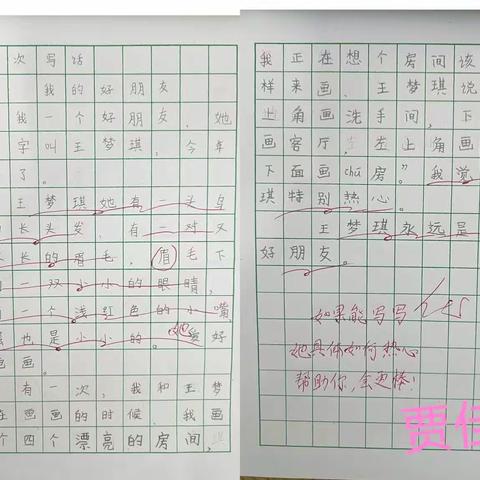 次写话
我的好朋友
我一个好朋友，她
字叫王梦琪，今年
了。
王梦琪她有一头乌
长头发，有一对又
长的眉毛，眉毛下
一双小小的眼睛，
一个浅红色的小嘴，
也是小小的。她爱好
画画。
有一次，我和王梦
在画画的时候，我画
个四个漂亮的房间，
我正在想个房间该
样来画，王梦琪说
上角画洗手间，下
画客厅，左上角画
下面画chú房。”我觉
琪特别热心。
王梦琪永远是
好朋友。
如果能写写
她具体如何热心
帮助你，会更棒！
贾佳